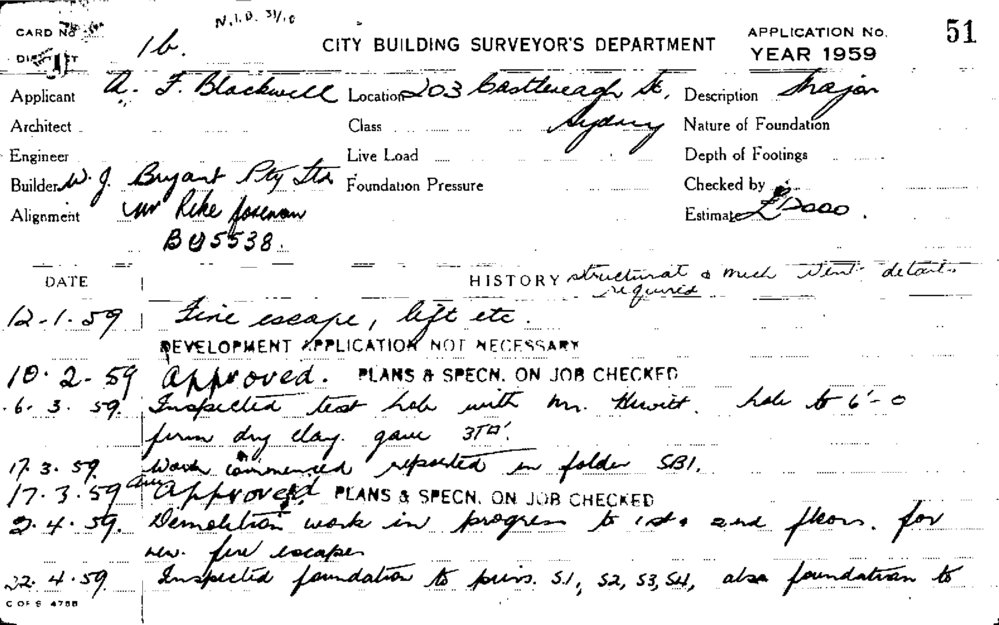 N.I.D. 31/10
CARD No
DISTRICT
1b.
CITY BUILDING SURVEYOR'S DEPARTMENT
APPLICATION No. 51
YEAR 1959
Applicant A. F. Blackwell Location 203 Castlereagh St, Sydney Description Major
Architect Class Nature of Foundation
Engineer Live Load Depth of Footings
Builder W. J. Bryant Pty Ltd Foundation Pressure Checked by
Alignment Mr Reke foreman Estimate
BU5538.
DATE HISTORY structural & mech vent details required
12-1.59 Fire escape, lift etc.
DEVELOPMENT APPLICATION NOT NECESSARY
10.2-59 Approved. PLANS & SPECN. ON JOB CHECKED
6. 3. 59. Inspected test hole with Mr. Hewitt. hole to 6'-0
firm dry clay. gave 3T□'.
17.3.59. Work commenced reported in folder SB1.
17.3.59 Approved PLANS & SPECN. ON JOB CHECKED
2.4.59. Demolition work in progress to 1st & 2nd floors. for
new. fire escapes
22.4.59. Inspected foundation to piers. S1, S2, S3, S4, also foundation to
C OF S 4788